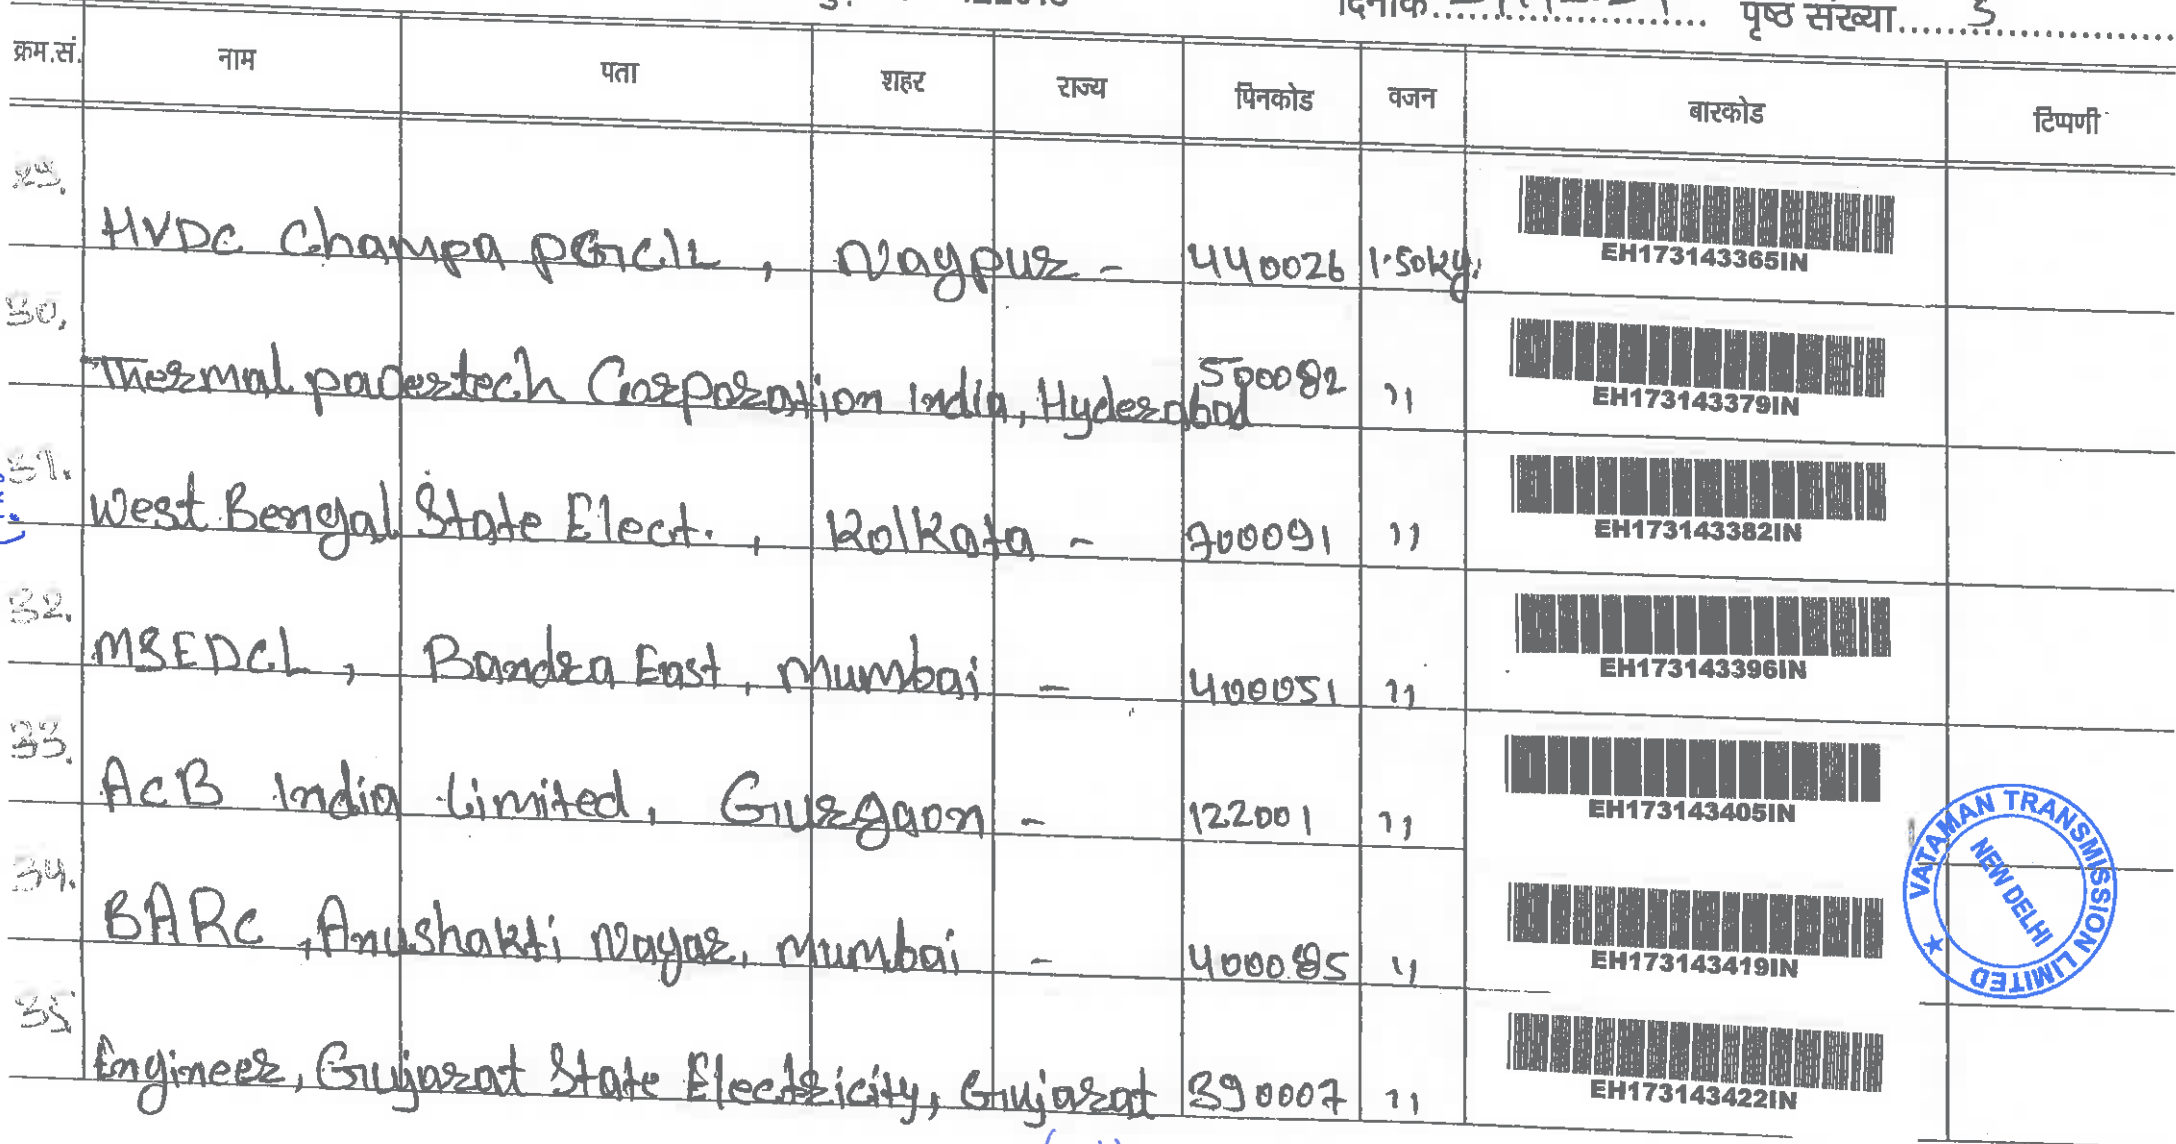 दिनांक पृष्ठ संख्या 5
क्रम.सं. नाम पता शहर राज्य पिनकोड वजन बारकोड टिप्पणी
29. HVDC Champa PGCIL, Nagpur - 440026 1.50kg. EH173143365IN
30. Thermal padertech Corporation India, Hyderabad 500082 ,, EH173143379IN
31. West Bengal State Elect., Kolkata - 700091 ,, EH173143382IN
32. MSEDCL, Bandra East, Mumbai - 400051 ,, EH173143396IN
33. ACB India Limited, Gurgaon - 122001 ,, EH173143405IN
34. BARC, Anushakti Nagar, Mumbai - 400085 ,, EH173143419IN
35 Engineer, Gujarat State Electricity, Gujarat 390007 ,, EH173143422IN
VATAMAN TRANSMISSION LIMITED
NEW DELHI